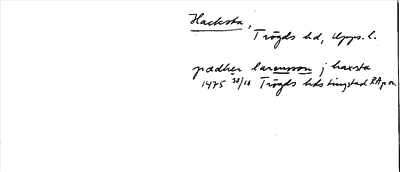 Hacksta,
Trögds hd, Upps. l.
pædher larensson j haxsta
1475 30/10 Trögds hds tingstad RAp or.